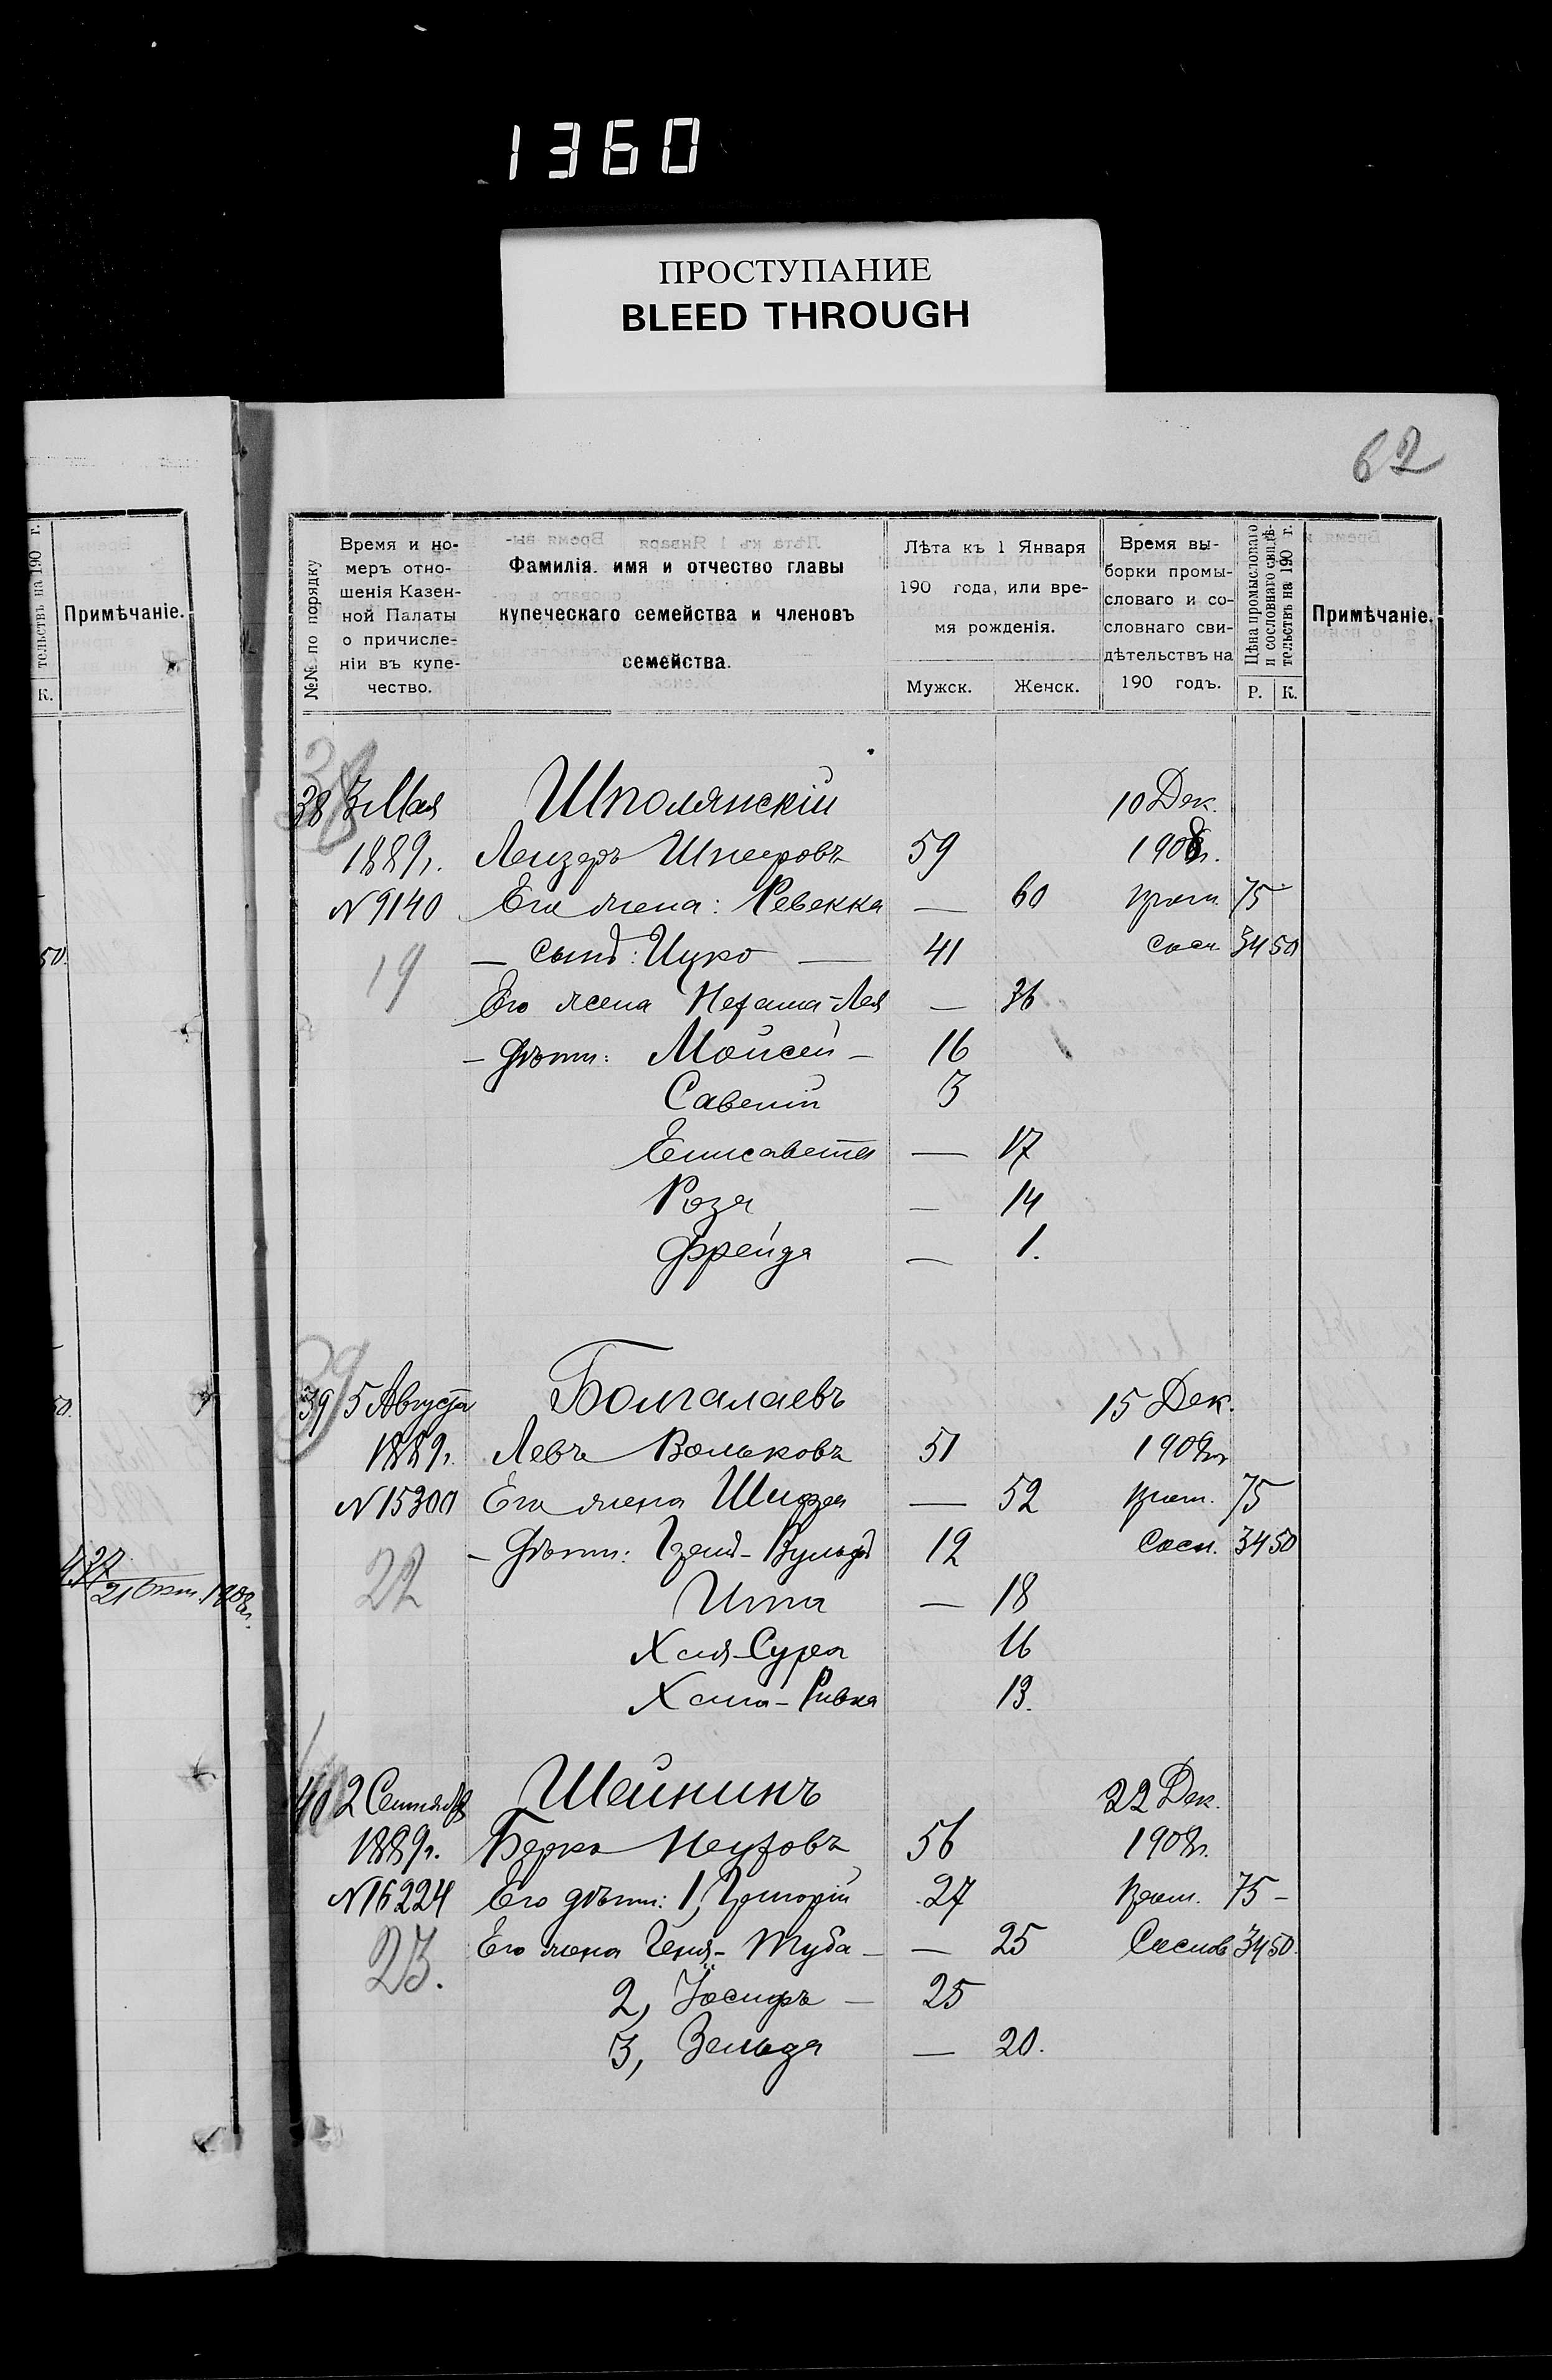 1360
ПРОСТУПАНИЕ
BLEED THROUGH
62
тельствъ на 190 г.
К.
Примѣчаніе.
50.
50.
21 Окт. 1908г.
№№ по порядку
Время и но-
меръ отно-
шенія Казен-
ной Палаты
о причисле-
ніи въ купе-
чество.
Фамилія. имя и отчество главы
купеческаго семейства и членовъ
семейства.
Лѣта къ 1 Января
190 года, или вре-
мя рожденія.
Мужск. Женск.
Время вы-
борки промы-
словаго и со-
словнаго сви-
дѣтельствъ на
190 годъ.
Цѣна промысловаго
и сословнаго свидѣ-
тельствъ на 190 г.
Р. К.
Примѣчаніе.
38
38 3 Мая Шполянскій 10 Дек.
1889г. Лейзеръ Шнееровъ 59 1908г.
N 9140 Его жена: Ревекка — 60 пром. 75 -
19 — сынъ: Ицко — 41 сосл. 34 50
Его жена Нехама-Лея — 36
- Дѣти: Мойсей — 16
Савелій 3
Елисавета — 17
Роза — 14
Фрейда — 1.
39
39 5 Августа Болгалаевъ 15 Дек.
1889г. Левъ Вольковъ 51 1908г.
N 15300 Его жена Шифра — 52 пром. 75
22 - Дѣти: Вульфъ 12 Сосл. 34 50
Ита — 18
Хая-Сура 16
Хана-Ривка 13.
40 2 Сентября Шейнинъ 22 Дек.
1889г. Берка Неуховъ 56 1908г.
N 16224 Его дѣти: 1, Григорій 27 пром. 75 -
23. Его жена Геня-Туба — — 25 Сослов 34 50.
2, Іосифъ — 25
3, Зельда — 20.